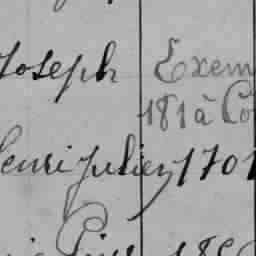 Joseph Exem
181 à Co
Henri Julien 1701